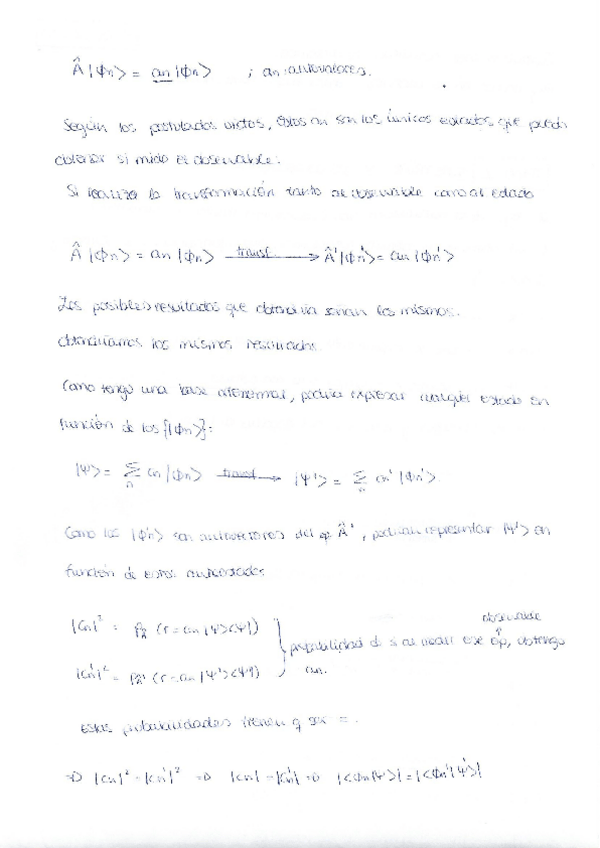 Â |ϕn> = an |ϕn> ; an: autovalores.
Según los postulados vistos, estos an son los únicos estados que puedo
obtener si mido el observable.
Si realiza la transformación tanto al observable como al estado
Â |ϕn> = an |ϕn> transf. → Â' |ϕn'> = an |ϕn'>
Los posibles resultados que obtendría serían los mismos.
obtendríamos los mismos resultados.
Como tengo una base ortonormal, podría expresar cualquier estado en
función de los {|ϕn>}:
|Ψ> = Σn cn |ϕn> transf → |Ψ'> = Σn cn' |ϕn'>
Como los |ϕn'> son autovectores del op Â', podrían representar |Ψ'> en
función de estos autoestados
|cn|² = PA (r = an |Ψ><Ψ|)
|cn'|² = PA' (r = an |Ψ'><Ψ'|)
} probabilidad de si al medir ese op, obtengo
observable
an.
Estas probabilidades tienen q ser =.
⇒ |cn|² = |cn'|² ⇒ |cn| = |cn'| ⇒ |<ϕn|Ψ>| = |<ϕn'|Ψ'>|